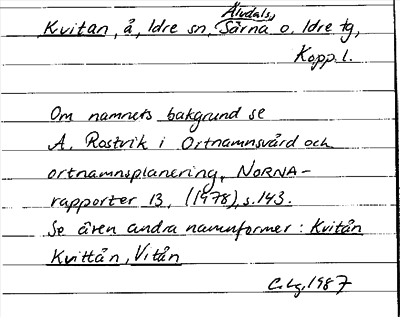 Älvdals,
Kvitan, å, Idre sn, Särna o. Idre tg,
Kopp. l.
Om namnets bakgrund se
A. Rostvik i Ortnamnsvård och
ortnamnsplanering, NORNA-
rapporter 13, (1978), s. 143.
Se även andra namnformer: Kvitån
Kvittån, Vitån
1987